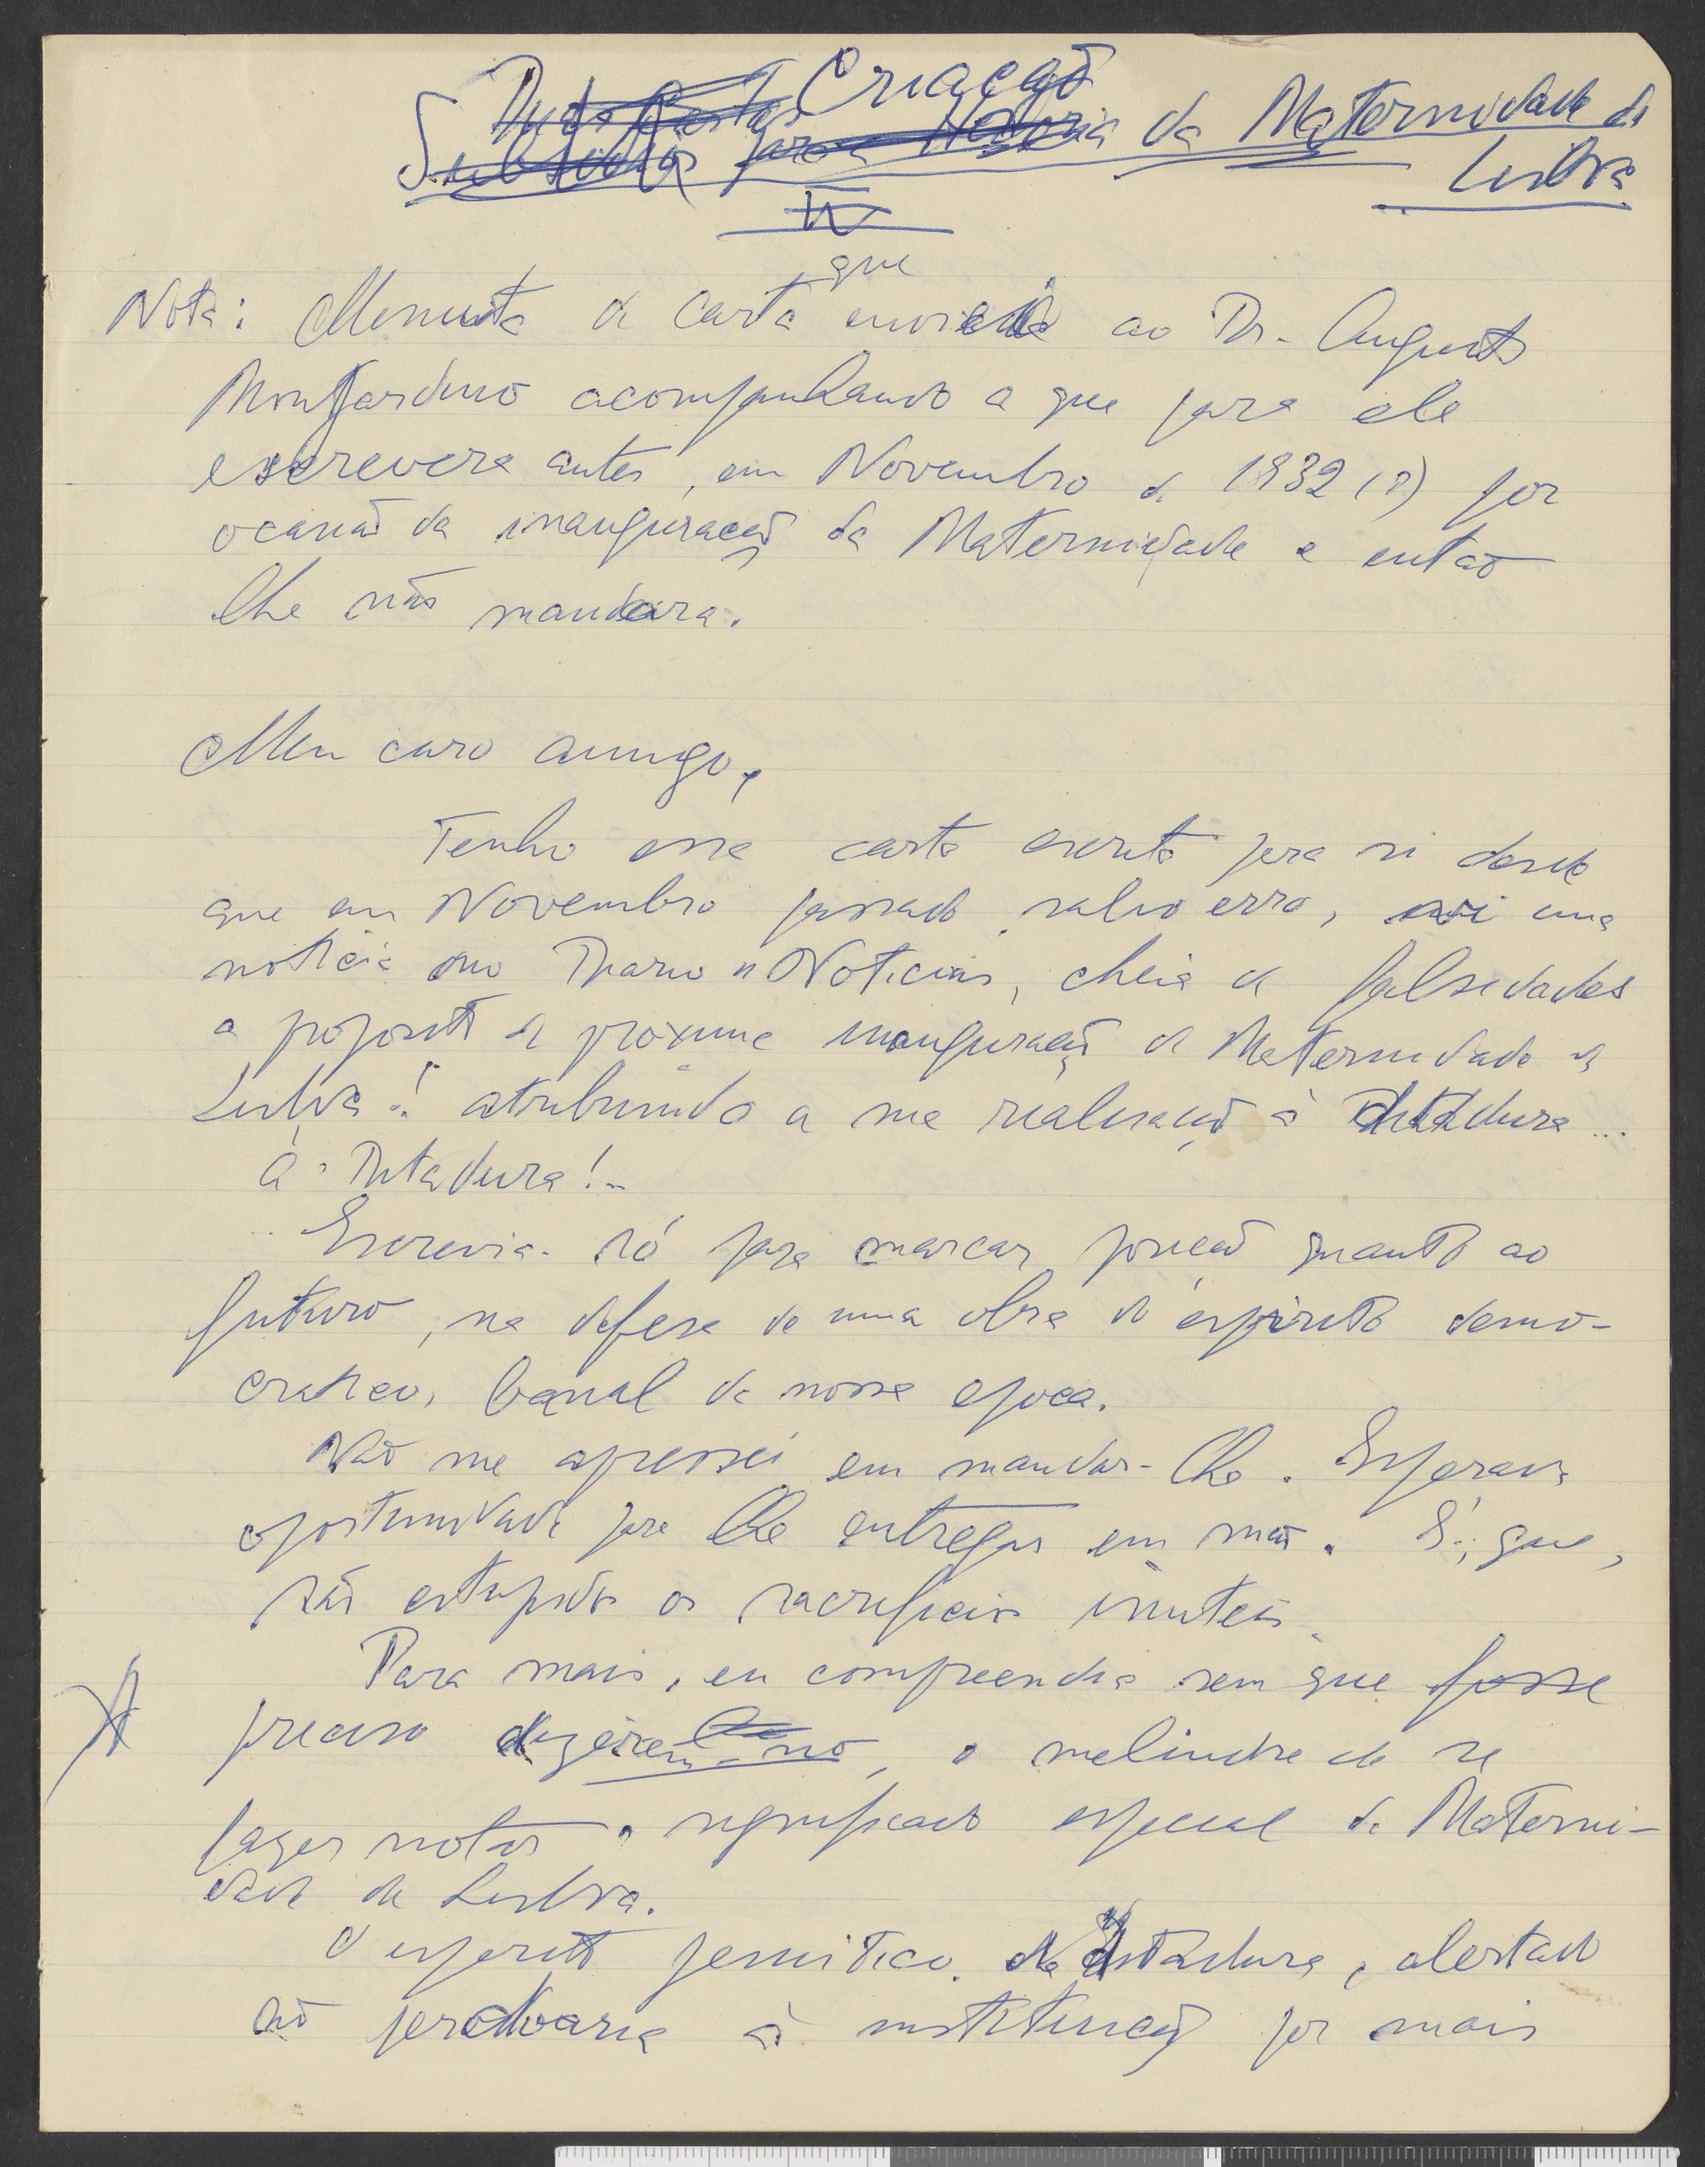 Criação
Subsidios para a Historia da Maternidade de
Lisboa
IV
que
Nota: Menuta de carta enviei ao Dr. Augusto
Monjardino acompanhando a que para ele
escrevera antes, em Novembro de 1932 (?) por
ocasião da inauguração da Maternidade e então
lhe não mandara.
Meu caro amigo,
Tenho essa carta escrita para si desde
que em Novembro passado, salvo erro, vi uma
noticia no Diario de Noticias, cheia de falsidades
a proposito da proxima inauguração da Maternidade de
Lisboa! atribuindo a sua realisação à Ditadura...
À Ditadura!..
Escrevi-a só para marcar posição quanto ao
futuro, na defesa de uma obra de espirito demo-
cratico, banal da nossa epoca.
Não me apressei em mandar-lha. Esperava
oportunidade para lhe entregar em mão. É, que,
são estupidos os sacrificios inuteis.
Para mais, eu compreendia sem que fosse
preciso dizerem-no, o melindre de se
fazer notar o significado especial da Materni-
dade de Lisboa.
O espirito jesuitico da Ditadura, alertado
não perdoaria à instituição por mais